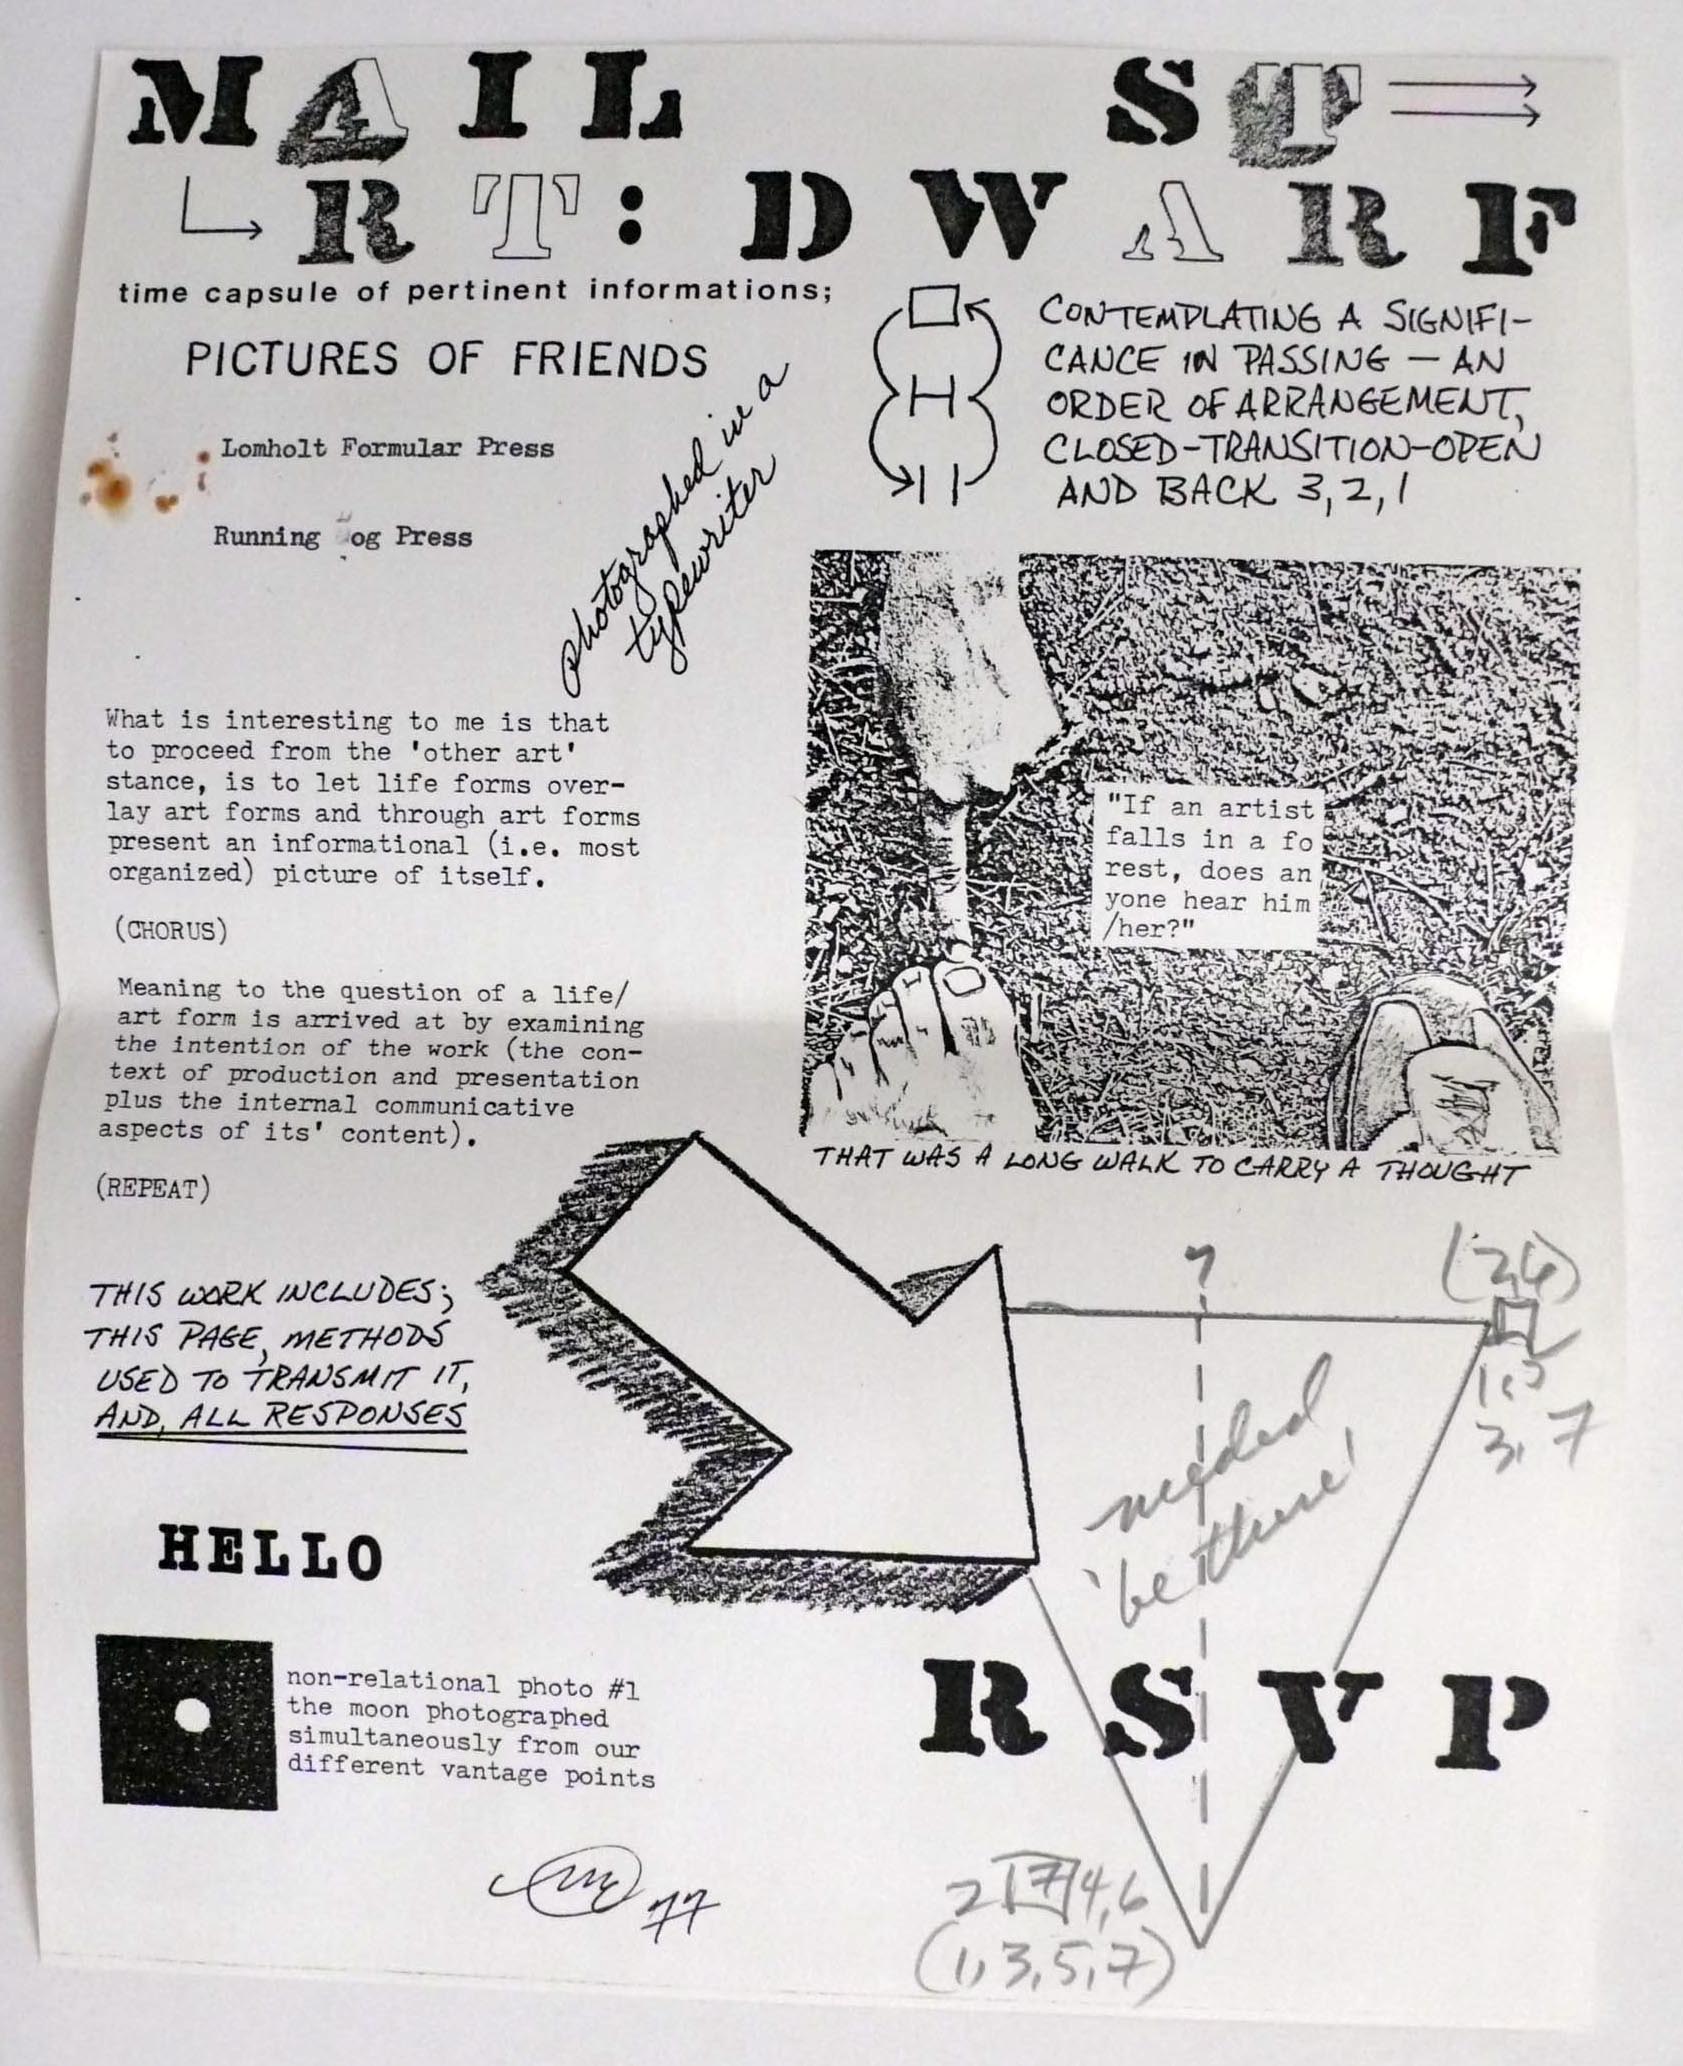 MAIL ST
RT: DWARF
time capsule of pertinent informations;
PICTURES OF FRIENDS
Lomholt Formular Press
Running og Press
photographed in a
typewriter
CONTEMPLATING A SIGNIFI-
CANCE IN PASSING — AN
ORDER OF ARRANGEMENT,
CLOSED-TRANSITION-OPEN
AND BACK 3, 2, 1
What is interesting to me is that
to proceed from the 'other art'
stance, is to let life forms over-
lay art forms and through art forms
present an informational (i.e. most
organized) picture of itself.
(CHORUS)
Meaning to the question of a life/
art form is arrived at by examining
the intention of the work (the con-
text of production and presentation
plus the internal communicative
aspects of its' content).
(REPEAT)
"If an artist
falls in a fo
rest, does an
yone hear him
/her?"
THAT WAS A LONG WALK TO CARRY A THOUGHT
THIS WORK INCLUDES;
THIS PAGE, METHODS
USED TO TRANSMIT IT,
AND, ALL RESPONSES
HELLO
non-relational photo #1
the moon photographed
simultaneously from our
different vantage points
77
?
(2,6)
3, 7
needed
'be there'
RSVP
2 17 4,6
(1,3,5,7)